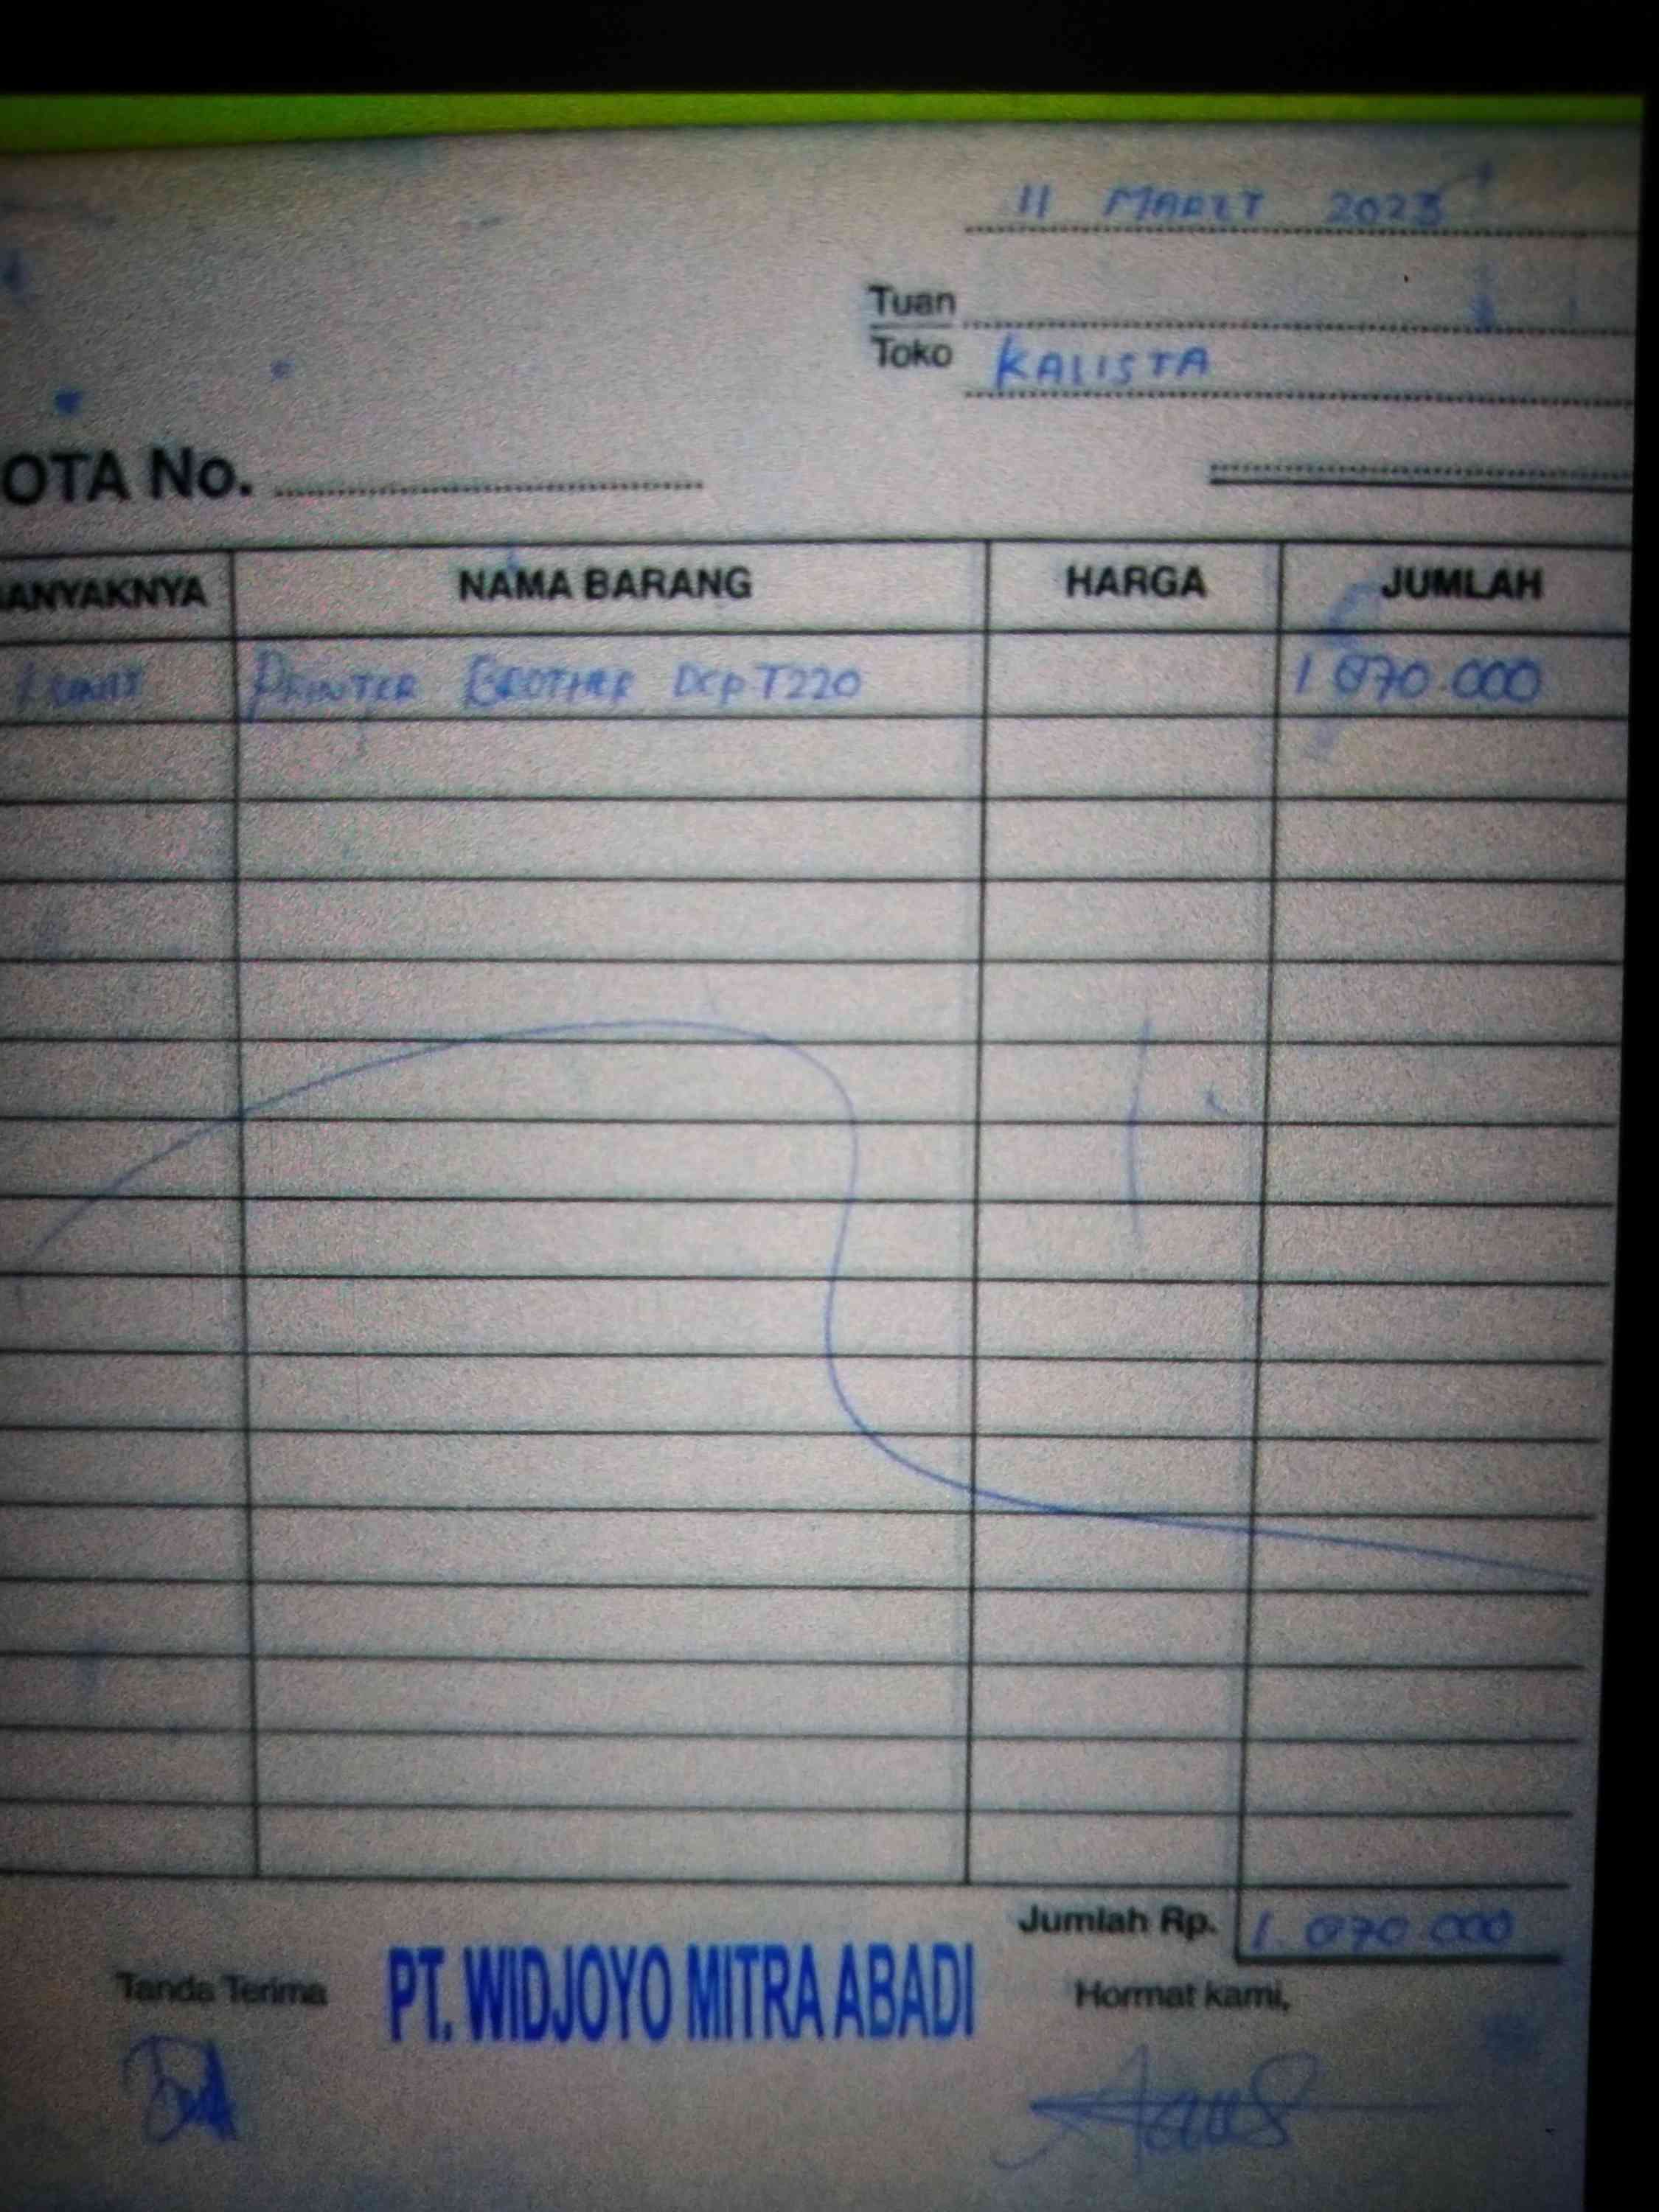 11 MARET 2023
Tuan
Toko KALISTA
OTA No.
ANYAKNYA NAMA BARANG HARGA JUMLAH
1 UNIT PRINTER BROTHER DCP-T220 1.870.000
Jumlah Rp. 1.870.000
Tanda Terima PT. WIDJOYO MITRA ABADI Hormat kami,